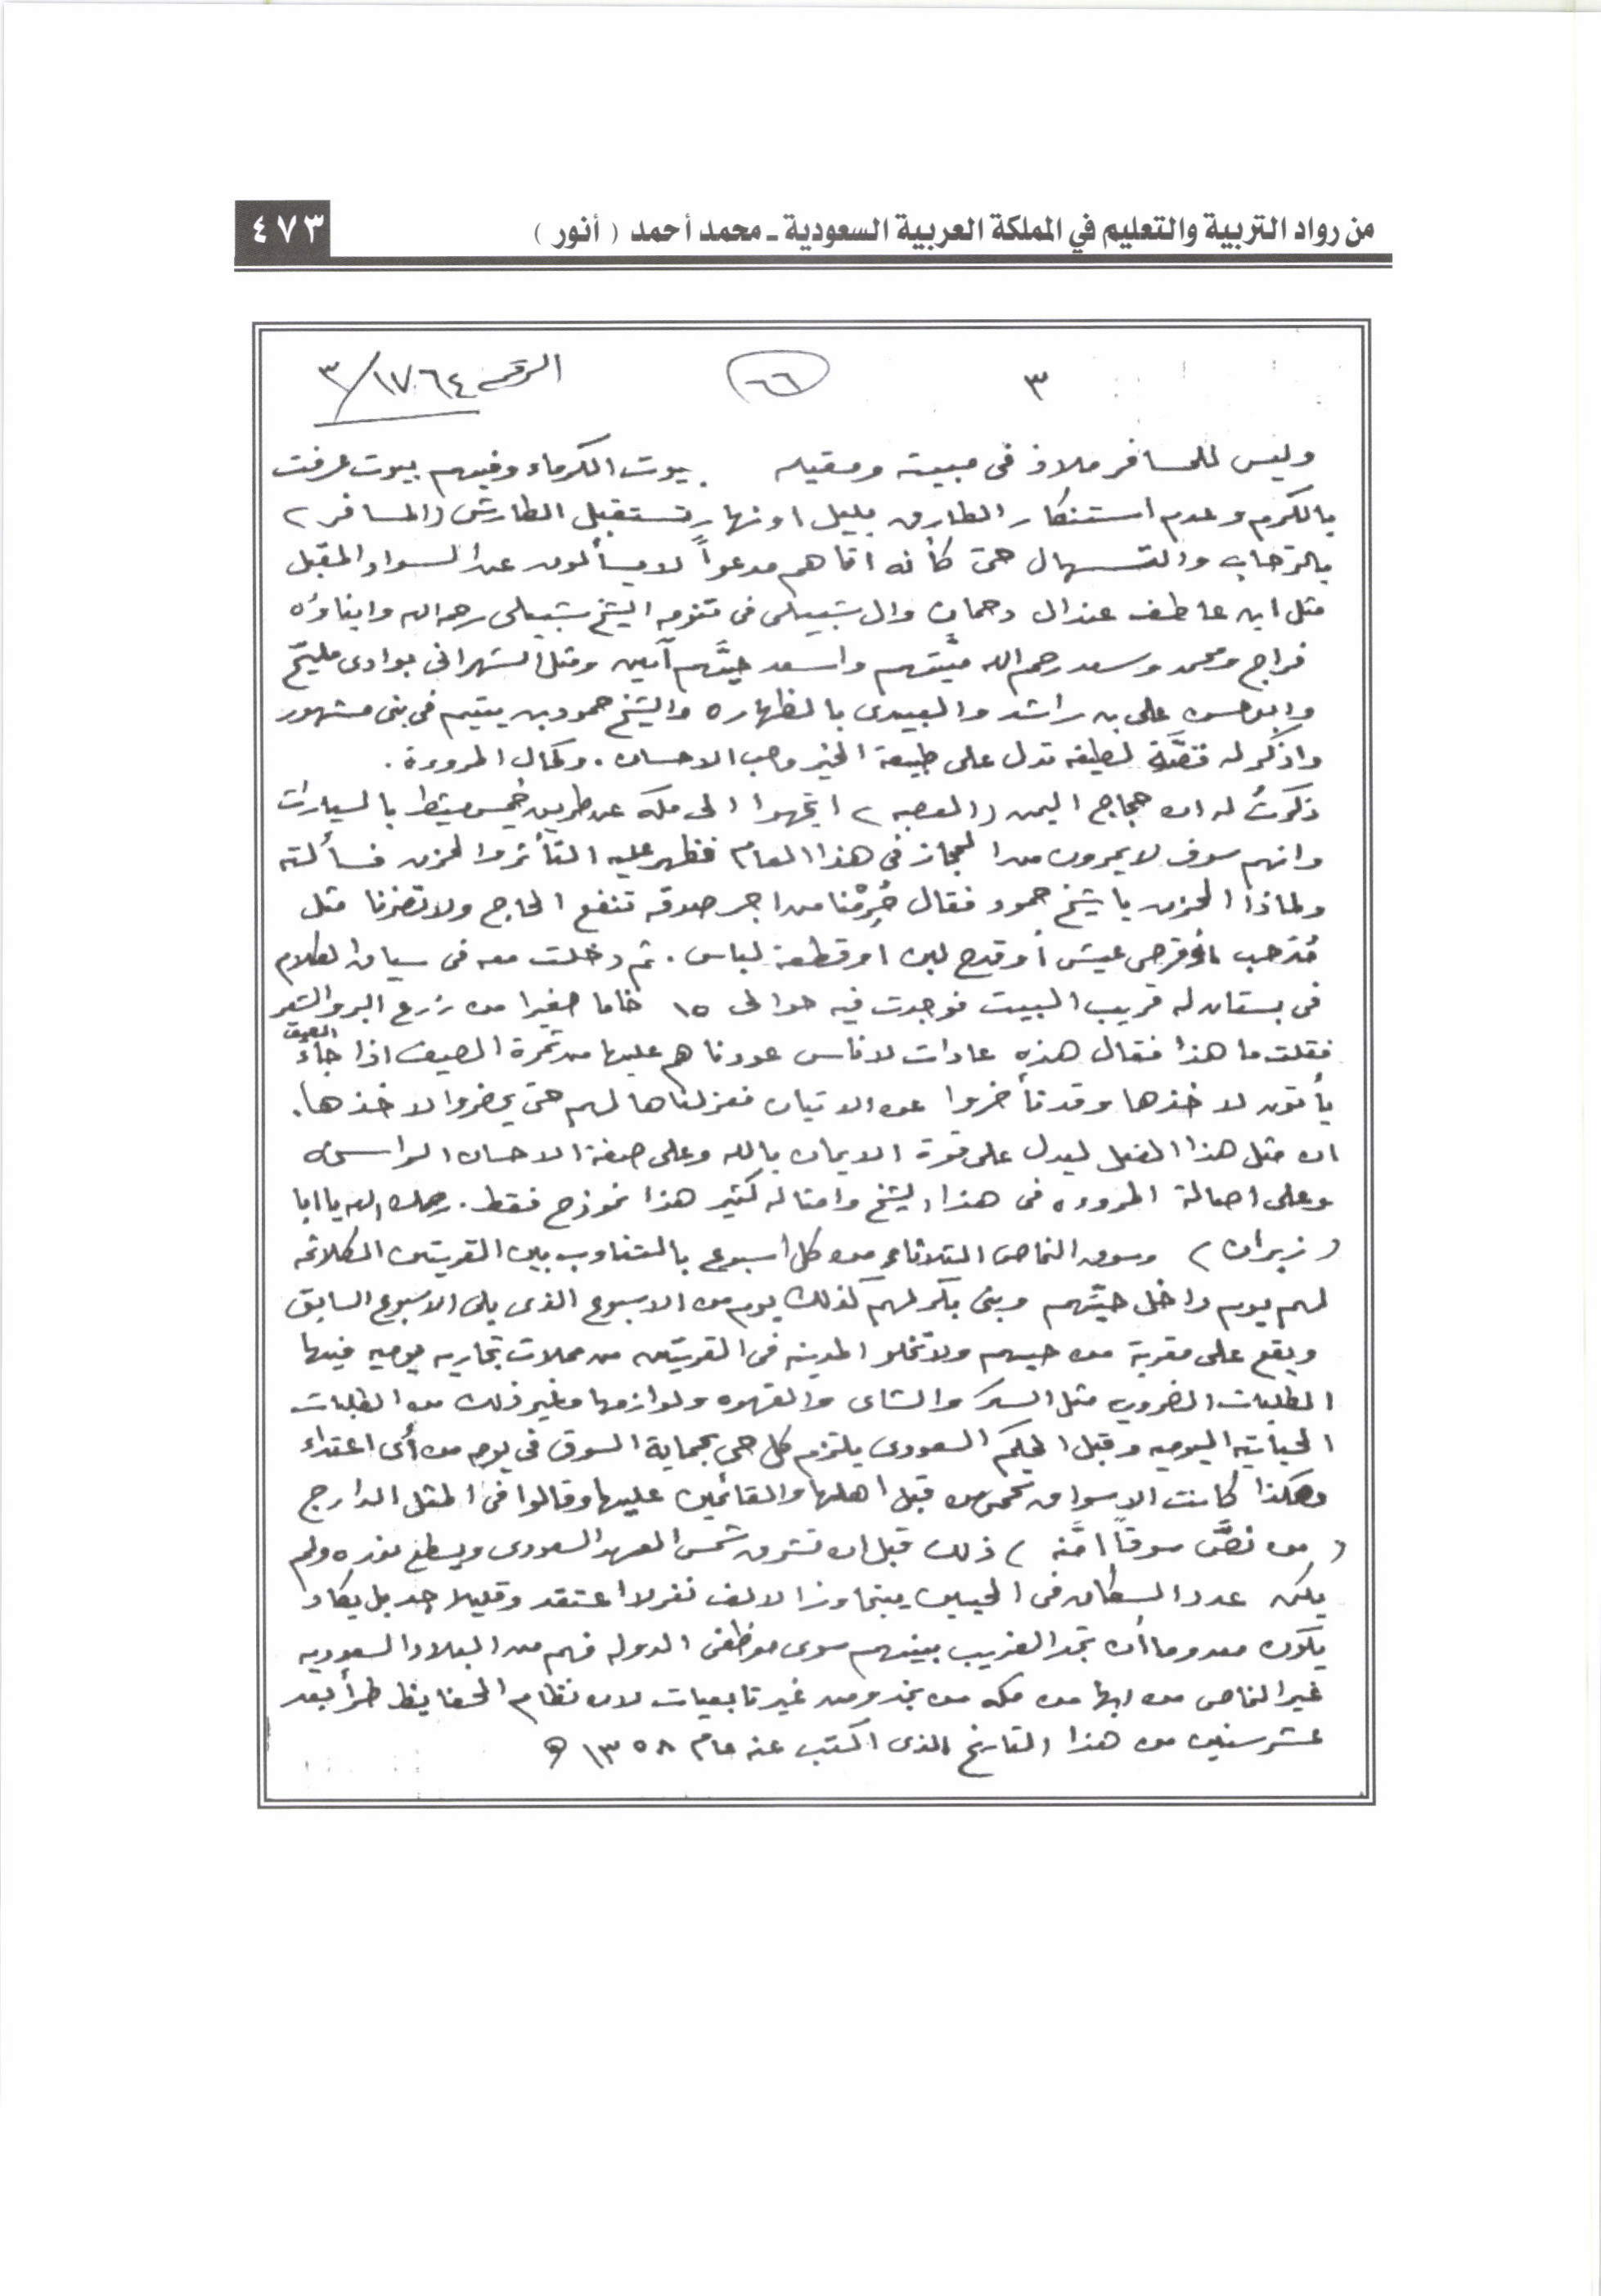 من رواد التربية والتعليم في المملكة العربية السعودية ـ محمد أحمد ( أنور )
٤٧٣
٣
٦٦
الرقم ١٧٦٤/٣
وليس للمسافر ملاذ فى مبيته ومقيله بيوت الكرماء وفيهم بيوت عرفت
بالكرم وعدم استنكار الطارق بليل او نهار تستقبل الطارش (المسافر)
بالترحاب والتسهال حتى كأنه اتاهم مدعواً لا يسألون عن السواد المقبل
مثل ابن عاطف عند ال دحمان وال شبيلى فى تنومه الشيخ شبيلى رحمه الله وابناؤه
فراج ومحمد وسعد رحم الله ميّتهم واسعد حيَّهم آمين ومثل الشهرانى بوادى مليح
وابو حسن على بن راشد والعبيدى بالظهاره والشيخ حمود بن يتيم فى بنى مشهور
واذكر له قصَّة لطيفه تدل على طبيعة الخير وحب الاحسان . وكمال المروءة .
ذكرتُ له ان حجاج اليمن (العصبه) اتجهوا الى مكه عن طريق خميس مشيط بالسيارات
وانهم سوف لا يمرون من الحجاز فى هذا العام فظهر عليه التأثر والحزن فسألته
ولماذا الحزن يا شيخ حمود فقال حُرِمْنا من اجر صدقه تنفع الحاج ولا تضرنا مثل
قرصى عيش أو قدح لبن او قطعة لباس . ثم دخلت معه فى سياق الكلام
فى بستان له قريب البيت فوجدت فيه حوالى ١٥ صغيرا من زرع البر والشعير
فقلت ما هذا فقال هذه عادات لاناس عودناهم عليها من ثمرة الصيف اذا جاء الصيف
يأتون لاخذها وقد تأخروا عن الاتيان فعزلناها لهم حتى يحضروا لاخذها .
ان مثل هذا الفعل ليدل على قوة الايمان بالله وعلى صفة الاحسان الراسخه
وعلى اصالة المروءه فى هذا الشيخ وامثاله كثير هذا نموذج فقط . رحمك الله يا ابا
( زبران ) وسوق النماص الثلاثاء من كل اسبوع بالتناوب بين القريتين الكلاثمه
لهم يوم داخل حيّهم وبنى بكر لهم كذلك يوم من الاسبوع الذى يلى الاسبوع السابق
ويقع على مقربة من حيهم ولا تخلو المدينه فى القريتين من محلات تجاريه يوميه فيها
الطلبات الضروريه مثل السكر والشاى والقهوه ولوازمها وغير ذلك من الطلبات
الحياتيه اليوميه وقبل الحكم السعودى يلتزم كل حى بحماية السوق فى يومه من أى اعتداء
وهكذا كانت الاسواق تحمى من قبل اهلها والقائمين عليها وقالوا فى المثل الدارج
( من نصَّ سوقاً امَّنه ) ذلك قبل ان تشرق شمس العهد السعودى ويسطع نوره ولم
يكن عدد السكان فى الحيين يتجاوز الالف نفر لا اعتقد وقليلا جد بل يكاد
يكون معدوما أن تجد الغريب بينهم سوى موظفى الدوله فهم من البلاد السعوديه
غير النماص من ابها من مكه من نجد ومن غير تابعيات لان نظام الحفايظ طرأ بعد
عشر سنين من هذا التاريخ الذى اكتب عنه عام ١٣٥٨ هـ